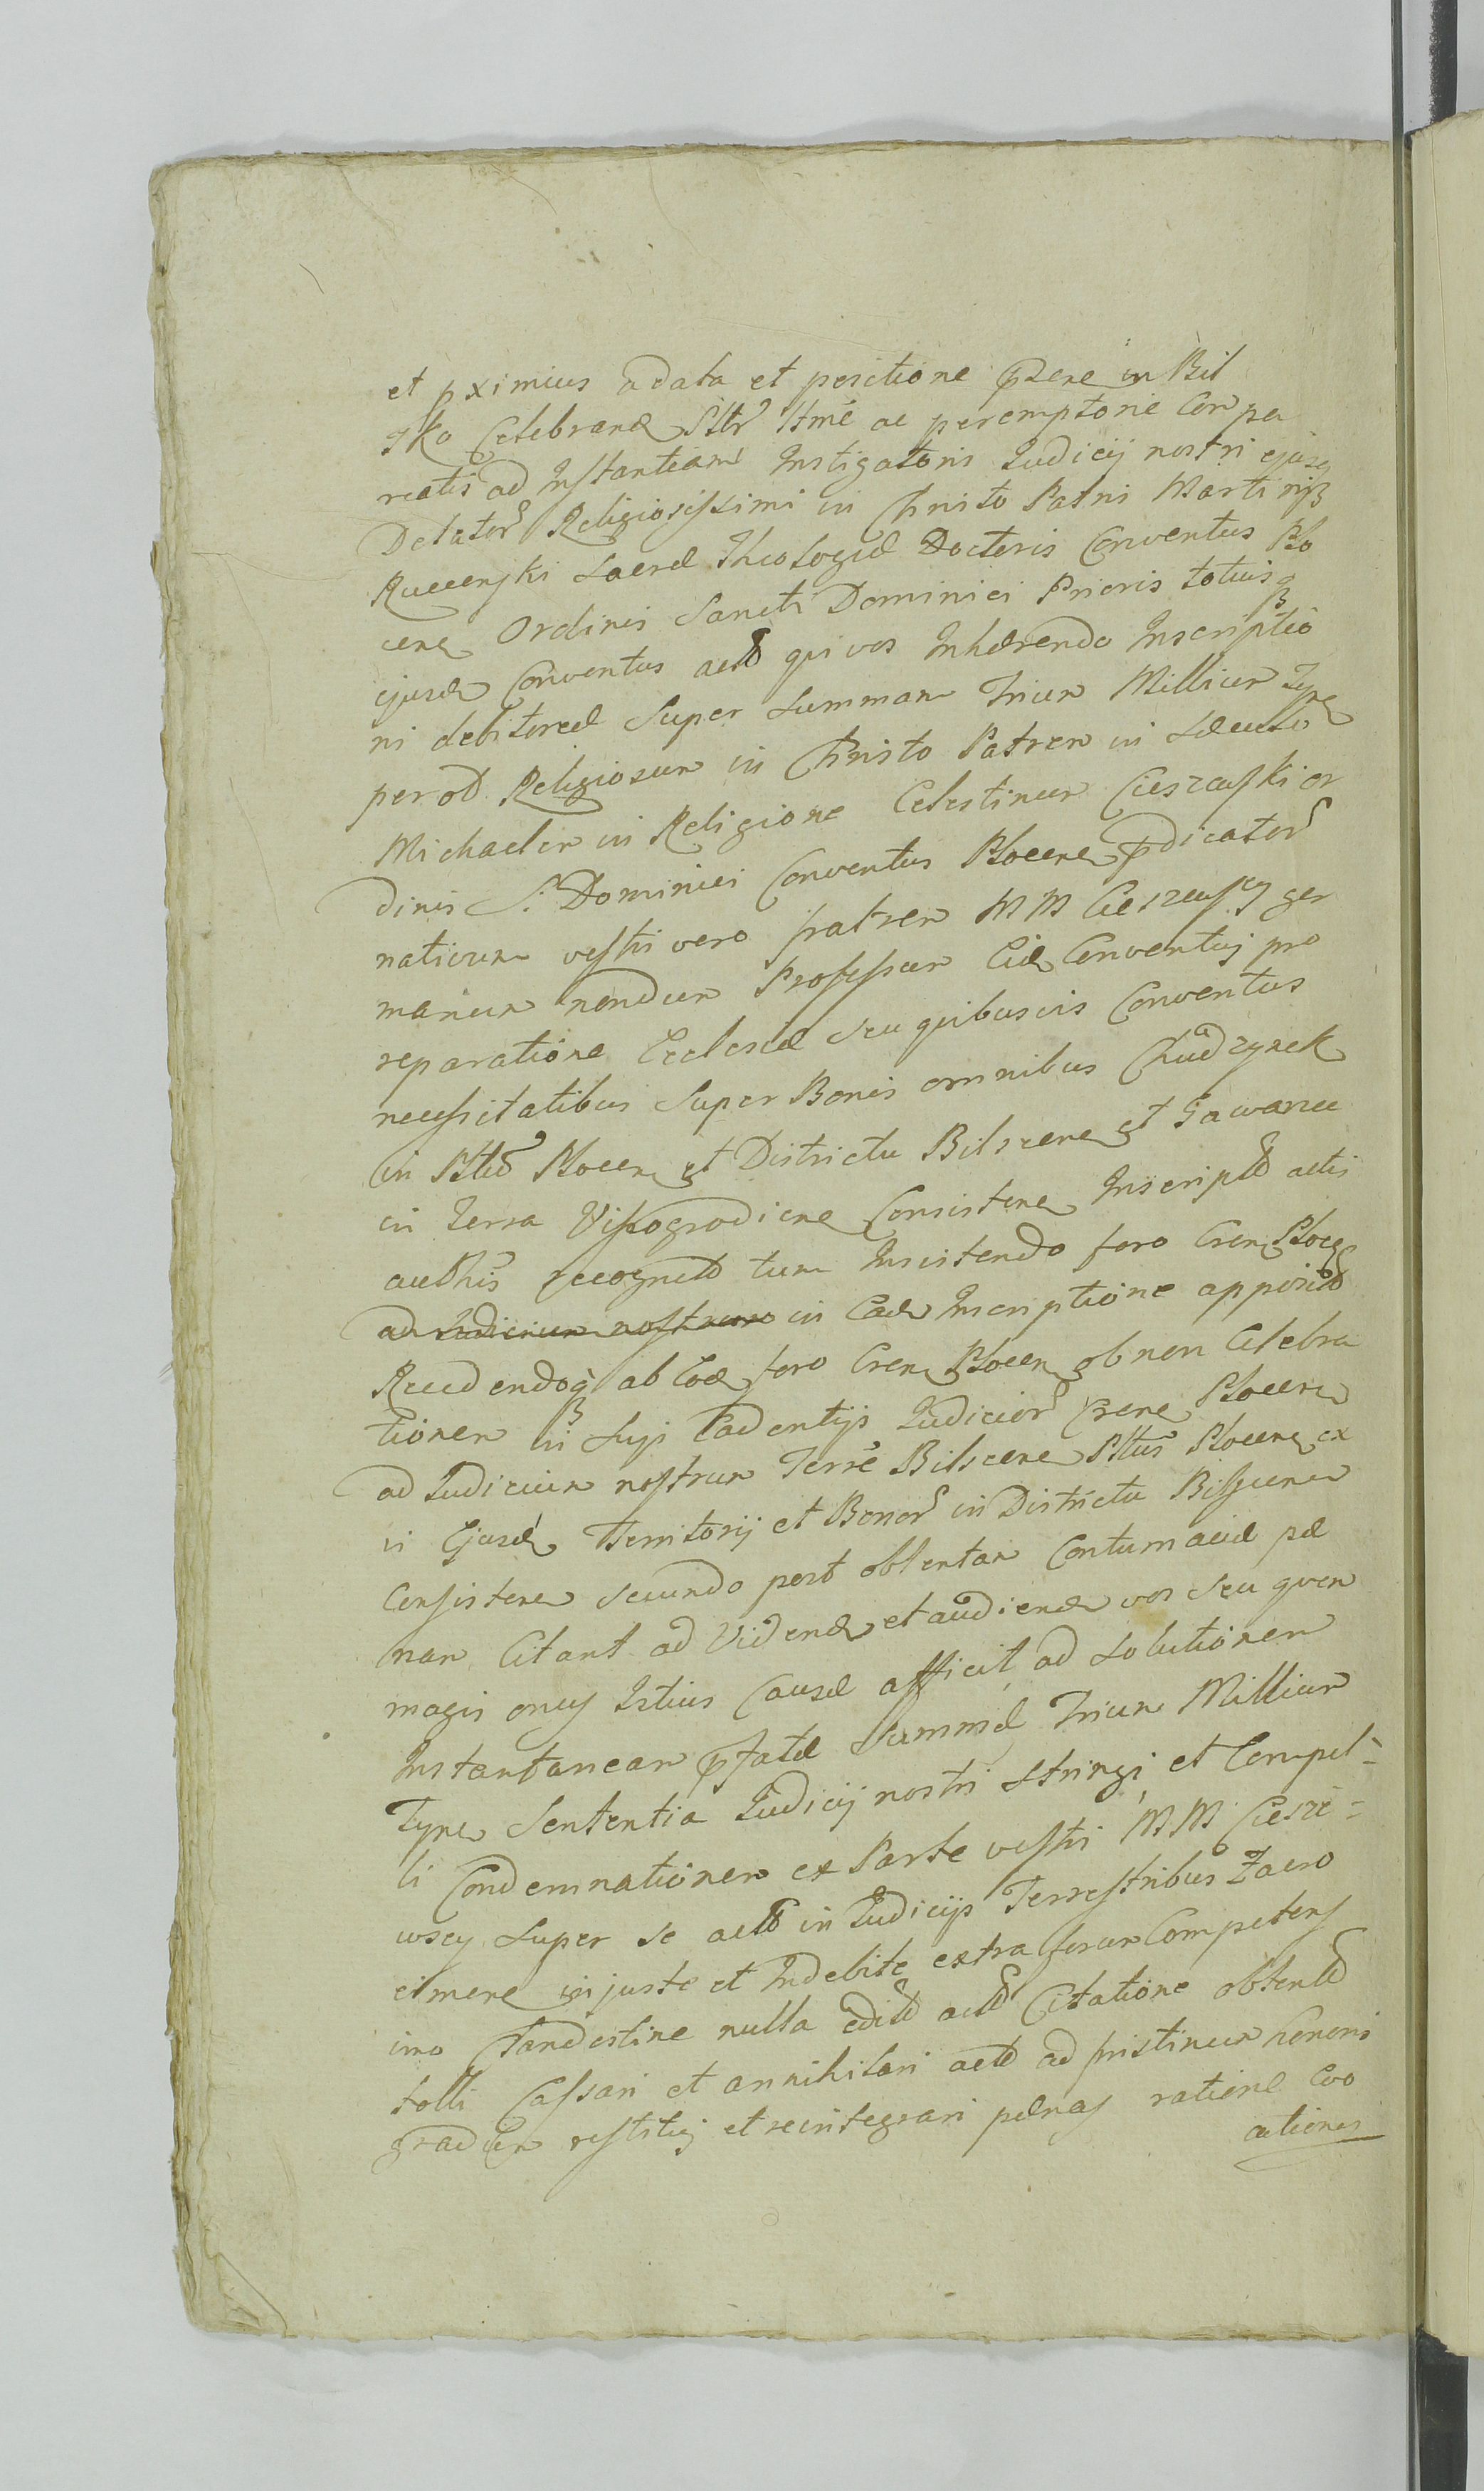 et pximius a data et positione psene in Bil
sko Celebrand Pltr Itmē ac peremptorie Compa
reatis ad Instantiam Instigatoris Judicij nostri ejusq
Delator Religiosissimi in Christo Patris Martini
Rucenski Sacræ Theologiæ Doctoris Conventus Plo
cen Ordinis Sancti Dominici Prioris totiusq
ejusd Conventus act qui vos Inhærendo Inscriptio
ni debitoreæ Super Summam Trium Millium Tyn
per od Religiosum in Christo Patrem in Sæculo
Michaelem in Religione Celestinum Cieszewski or
dinis S. Dominici Conventus Plocen pdicator
naticum vestri vero fratrem MM Cieszewscy ger
manum nondum Professum Eid Conventuj pro
reparatione Ecclesiæ seu quibusvis Conventus
necessitatibus Super Bonis omnibus Chudzynek
in Pltu Plocen et Districtu Bilscen et Gawarzec
in Terra Vissogrodien Consisten Inscript actis
authīs recognit tum Insistendo foro Cren Plocen
ad Judicium nostrum in Ead Inscriptione apposit
Recedendoq ab Eod foro Cren Plocen ob non Celebra
tionem in Suis Cadentijs Judicior Crens Plocen
ad Judicium nostrum Terre Bilscen Pltus Plocen ex
vi Ejusd Territorij et Bonor in Districtu Bilscen
Consisten secundo post obtentam Contumaciæ pæ
nam Citant ad Videnđ et audienđ vos seu quem
magis onus Istius Causæ afficit ad Solutionem
Instantaneam pfatæ Summæ Trium Millium
Tyn Sententia Judicij nostri Stringi et Compel=
li Condemnationem ex Parte vestri MMCiesze=
wscy Super se act in Judicijs Terrestribus Zacro
cimen injuste et Indebite extra forum Competens
imo Clandestine nulla edit act Citatione obtent
tolli Cassari et annihilari act ad pristinum honoris
gradum restituj et reintegrari pænas ratione Evo
cationis